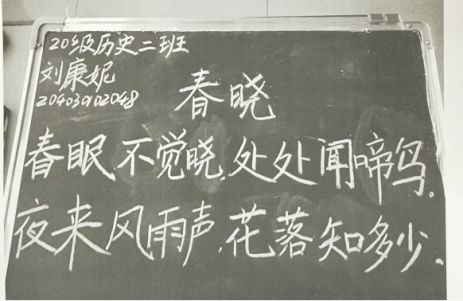 20级历史二班
刘康妮
204030102048
春晓
春眠不觉晓,处处闻啼鸟.
夜来风雨声,花落知多少.